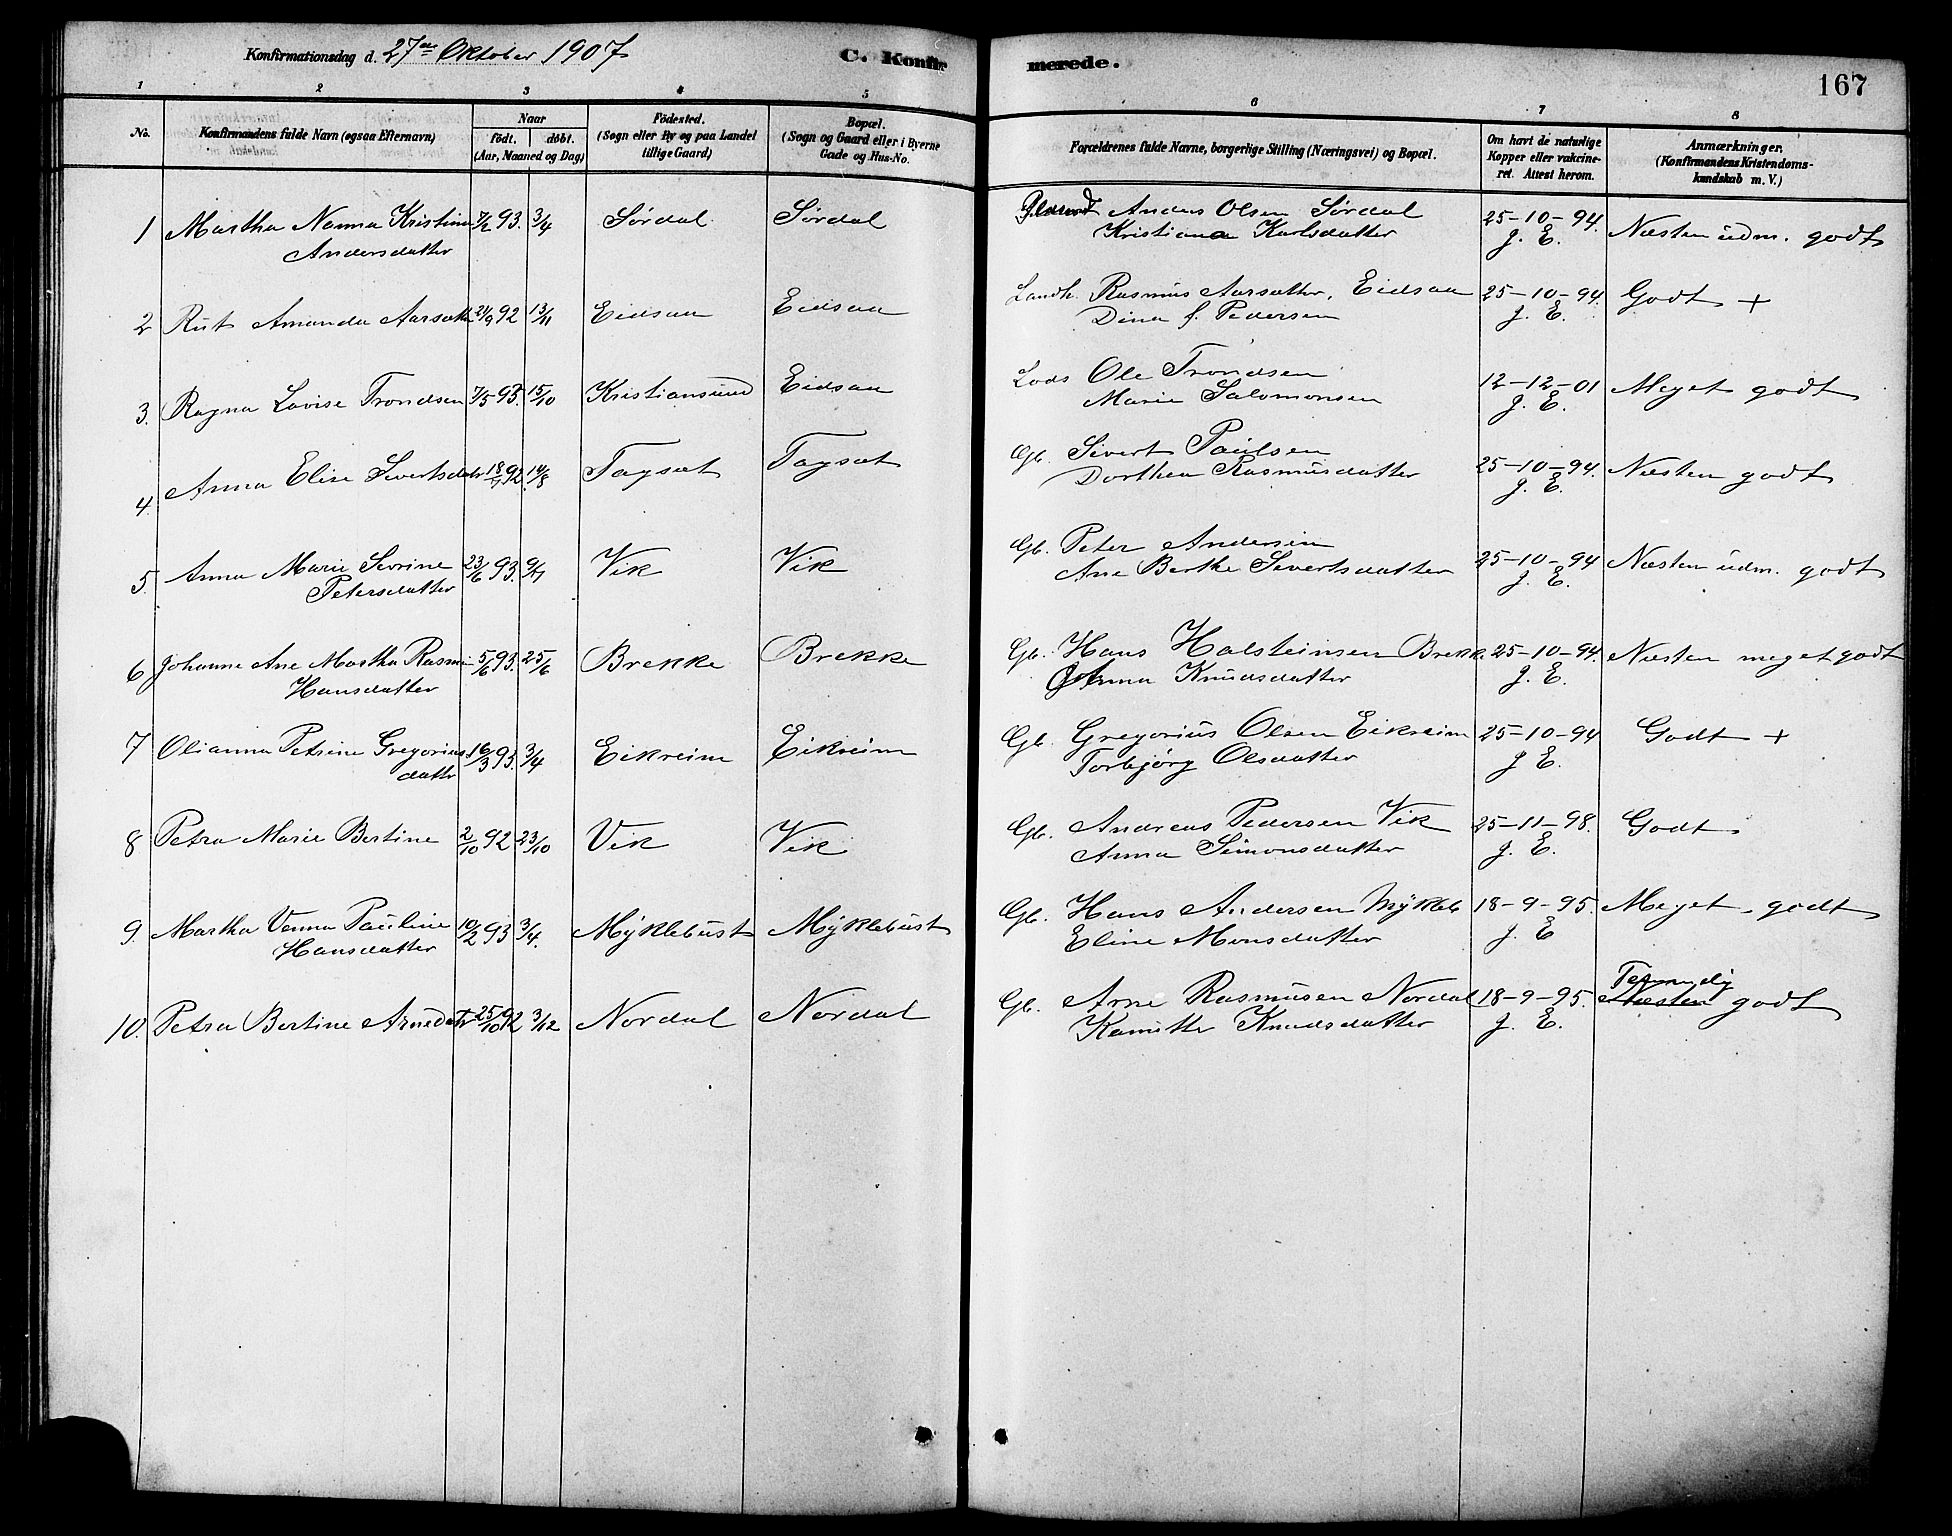 Konfirmationsdag d. 27de Oktober 1907
C. Konfirmerede.
167
1 2 3 4 5 6 7 8
No.
Konfirmandens fulde Navn (ogsaa Efternavn)
Naar
födt. döbt.
(Aar, Maaned og Dag)
Födested.
(Sogn eller By og paa Landet
tillige Gaard)
Bopæl.
(Sogn og Gaard eller i Byerne
Gade og Hus-No.
Forældrenes fulde Navne, borgerlige Stilling (Næringsvei) og Bopæl.
Om havt de naturlige
Kopper eller vakcine-
ret. Attest herom.
Anmærkninger.
(Konfirmandens Kristendoms-
kundskab m. V.)
1 Martha Nanna Kristine 7/2 93. 3/4 Sørdal Sørdal Anders Olsen Sørdal 25-10-94. Næsten udm. godt
Andersdatter Kristiana Karlsdatter J. E.
2 Rut Amanda Aarsæther 21/9 92 13/11 Eidsaa Eidsaa Landh. Rasmus Aarsæther, Eidsaa 25-10-94. Godt +
Dina f. Pedersen J. E.
3. Ragna Lovise Trondsen 7/5 93. 15/10 Kristiansund Eidsaa Lods Ole Trondsen 12-12-01 Meget godt
Marie Salomonsen J. E.
4. Anna Elise Sivertsdatr 18/7 92 14/8 Tagsæt Tagsæt Gb. Sivert Paulsen 25-10-94. Næsten godt
Dorthea Rasmusdatter J. E.
5. Anna Marie Sevrine 23/6 93. 9/7 Vik Vik Gb. Peter Andersen 25-10-94 Næsten udm. godt
Petersdatter Ane Berthe Sivertsdatter J. E.
6 Johanne Ane Martha Rasmine 5/6 93. 25/6 Brekke Brekke Gb. Hans Halsteinsen Brekke 25-10-94. Næsten meget godt
Hansdatter Anna Knudsdatter J. E.
7 Olianna Petrine Gregorius 16/3 93. 3/4 Eikreim Eikreim Gb. Gregorius Olsen Eikreim 25-10-94 Godt +
datter Torbjørg Olsdatter J E.
8 Petra Marie Bertine 2/10 92 23/10 Vik Vik Gb. Andreas Pedersen Vik 25-11-98. Godt
Anna Simonsdatter J. E.
9. Martha Venna Pauline 10/2 93 3/4. Myklebust Myklebust Gb. Hans Andersen Mykleb 18-9-95. Meget godt
Hansdatter Eline Monsdatter J. E
10. Petra Bertine Arnedatr 25/10 92 3/12 Nordal Nordal Gb. Arne Rasmusen Nordal 18-9-95. Næsten godt
Knudsdatter J. E.